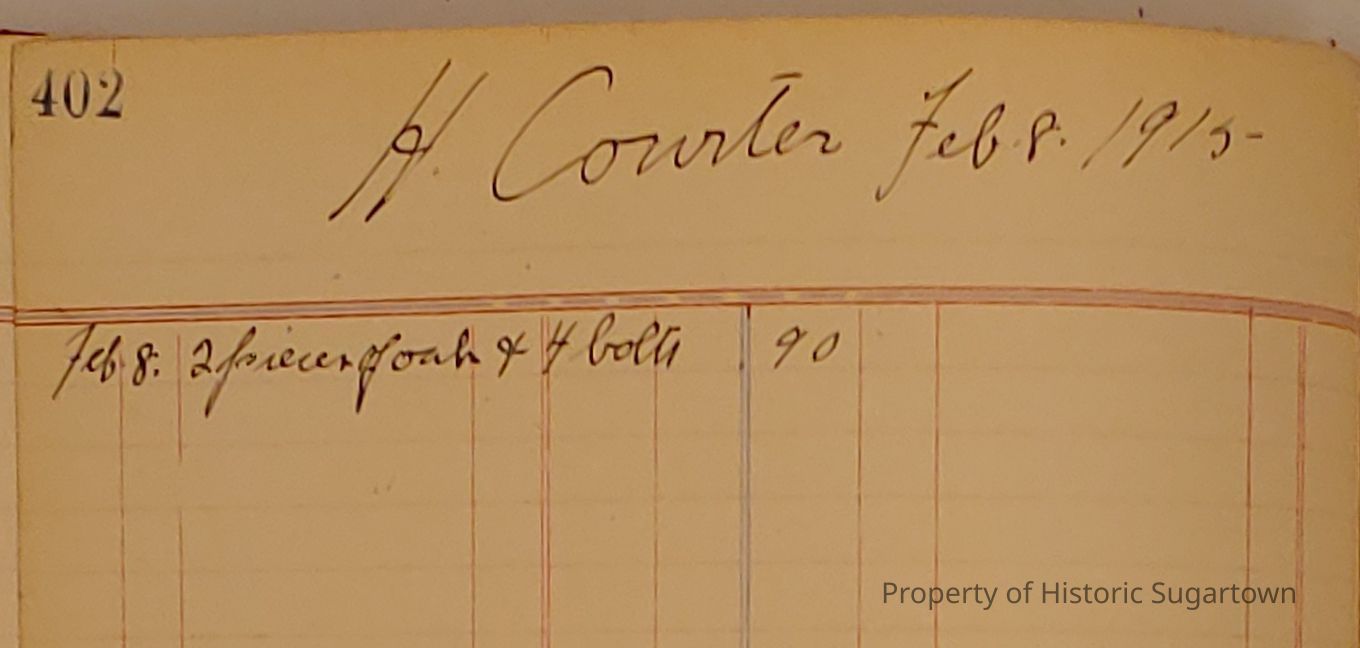 402
H. Courter Feb. 8. 1915-
Feb. 8. 2 pieces of oak & 4 bolts 90
Property of Historic Sugartown